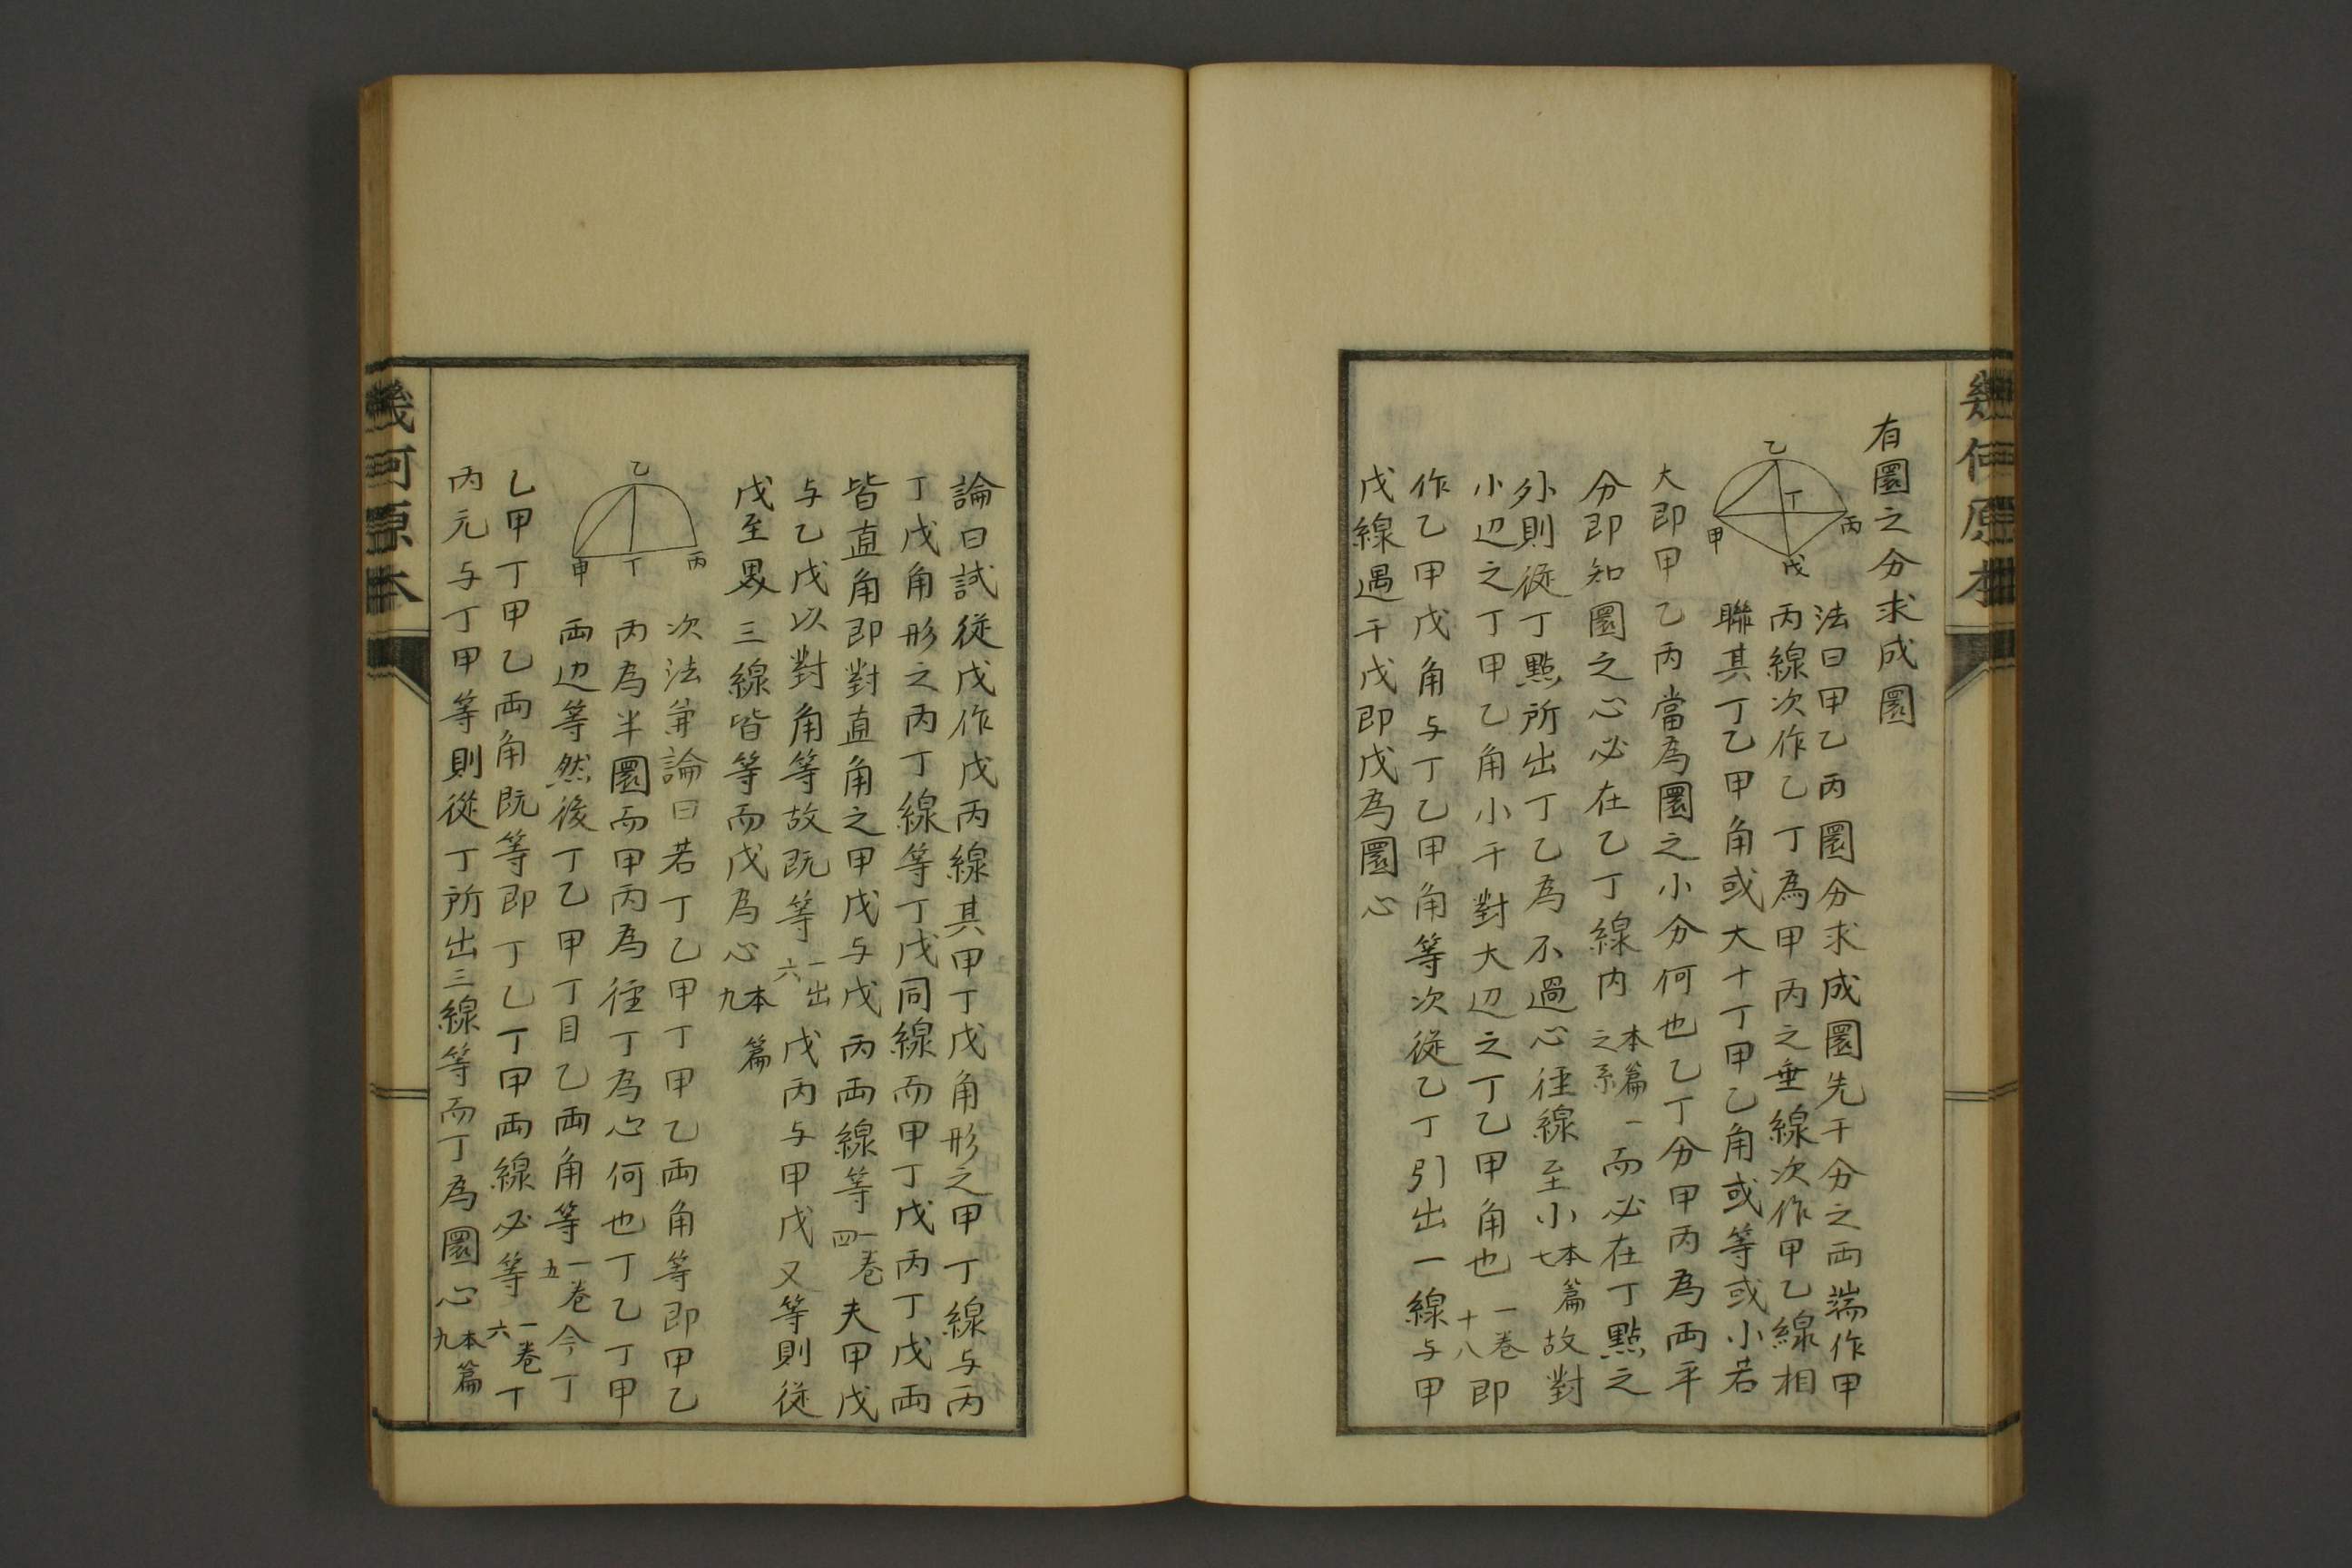 幾何原本
有圜之分求成圜
乙
丁
甲
丙
戊
法曰甲乙丙圜分求成圜先于分之両端作甲
丙線次作乙丁為甲丙之垂線次作甲乙線相
聯其丁乙甲角或大十丁甲乙角或等或小若
大即甲乙丙當為圜之小分何也乙丁分甲丙為両平
分即知圜之心必在乙丁線内 本篇一之系 而必在丁點之
外則從丁點所出丁乙為不過心徑線至小 本篇七 故對
小辺之丁甲乙角小于對大辺之丁乙甲角也 一卷十八 即
作乙甲戊角与丁乙甲角等次從乙丁引出一線与甲
戊線遇于戊即戊為圜心
論曰試從戊作戊丙線其甲丁戊角形之甲丁線与丙
丁戊角形之丙丁線等丁戊同線而甲丁戊丙丁戊両
皆直角即對直角之甲戊与戊丙両線等 一卷四 夫甲戊
与乙戊以對角等故既等 一出六 戊丙与甲戊又等則從
戊至界三線皆等而戊為心 本篇九
乙
甲
丁
丙
次法筭論曰若丁乙甲丁甲乙両角等即甲乙
丙為半圜而甲丙為徑丁為心何也丁乙丁甲
両辺等然後丁乙甲丁目乙両角等 一卷五 今丁
乙甲丁甲乙両角既等即丁乙丁甲両線必等 一卷六 丁
丙元与丁甲等則從丁所出三線等而丁為圜心 本篇九
幾何原本